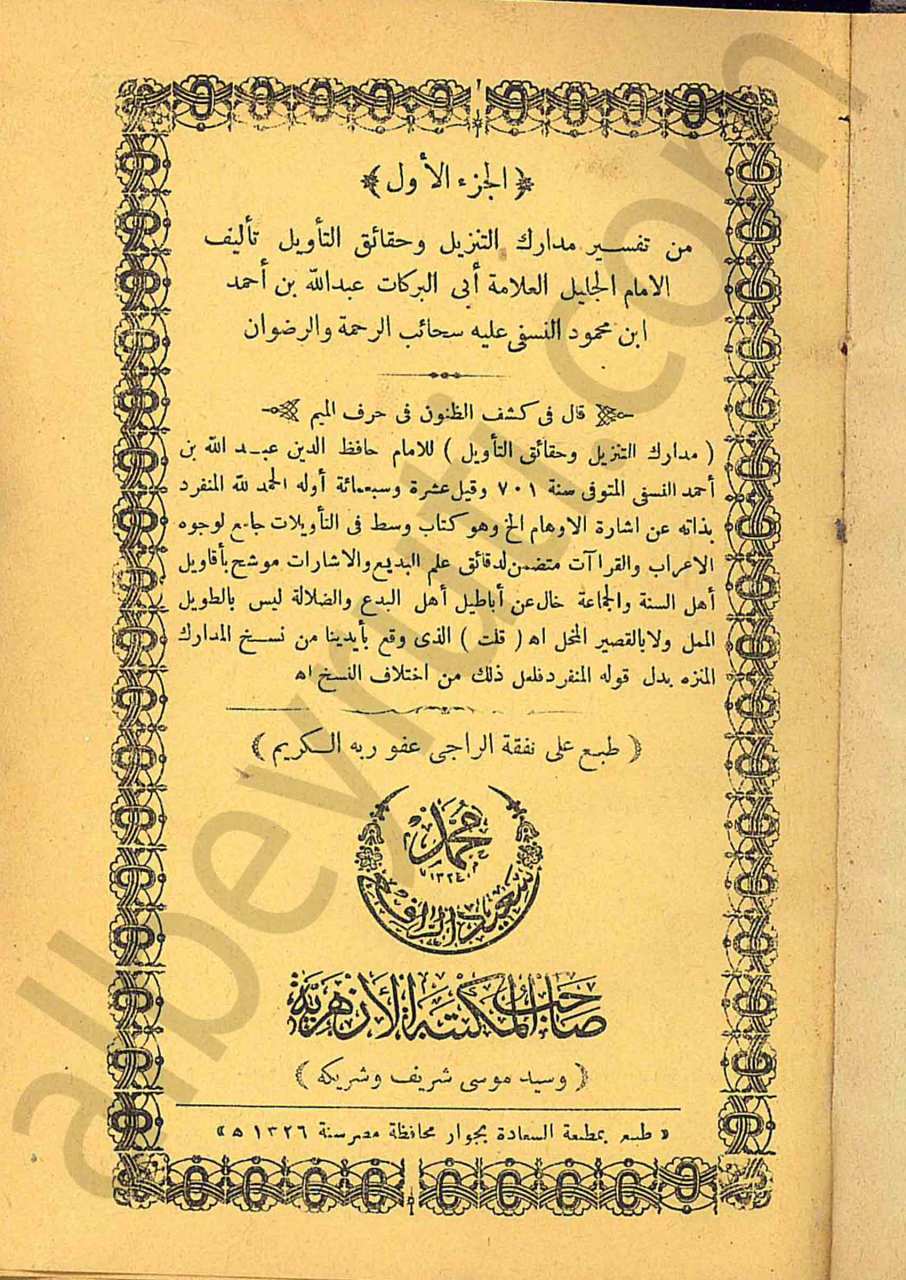 ﴿ الجزء الأول ﴾
من تفسير مدارك التنزيل وحقائق التأويل تأليف
الامام الجليل العلامة أبى البركات عبدالله بن أحمد
ابن محمود النسفى عليه سحائب الرحمة والرضوان
قال فى كشف الظنون فى حرف الميم
( مدارك التنزيل وحقائق التأويل ) للامام حافظ الدين عبد الله بن
أحمد النسفى المتوفى سنة ٧٠١ وقيل عشرة وسبعمائة أوله الحمد لله المنفرد
بذاته عن اشارة الاوهام الخ وهو كتاب وسط فى التأويلات جامع لوجوه
الاعراب والقراآت متضمن لدقائق علم البديع والاشارات موشح بأقاويل
أهل السنة والجماعة خال عن أباطيل أهل البدع والضلالة ليس بالطويل
الممل ولا بالقصير المخل اه ( قلت ) الذى وقع بأيدينا من نسخ المدارك
المنزه بدل قوله المنفرد فلعل ذلك من اختلاف النسخ اه
﴿ طبع على نفقة الراجى عفو ربه الكريم ﴾
محمد
١٣٢٤
سعيد الرافعى
صاحب المكتبة الأزهرية
﴿ وسيد موسى شريف وشريكه ﴾
« طبع بمطبعة السعادة بجوار محافظة مصر سنة ١٣٢٦ ه »
albeyruti.com